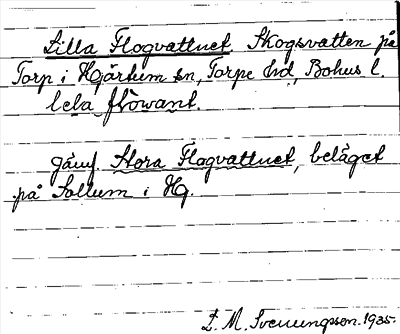 Lilla Flogvattnet Skogsvatten på
Torp i Hjärtum sn, Torpe hd, Bohus l.
lela flowant.
jämf. Stora Flagvattnet, beläget
på Sollum i Hg.
L. M. Svenungsson. 1935.